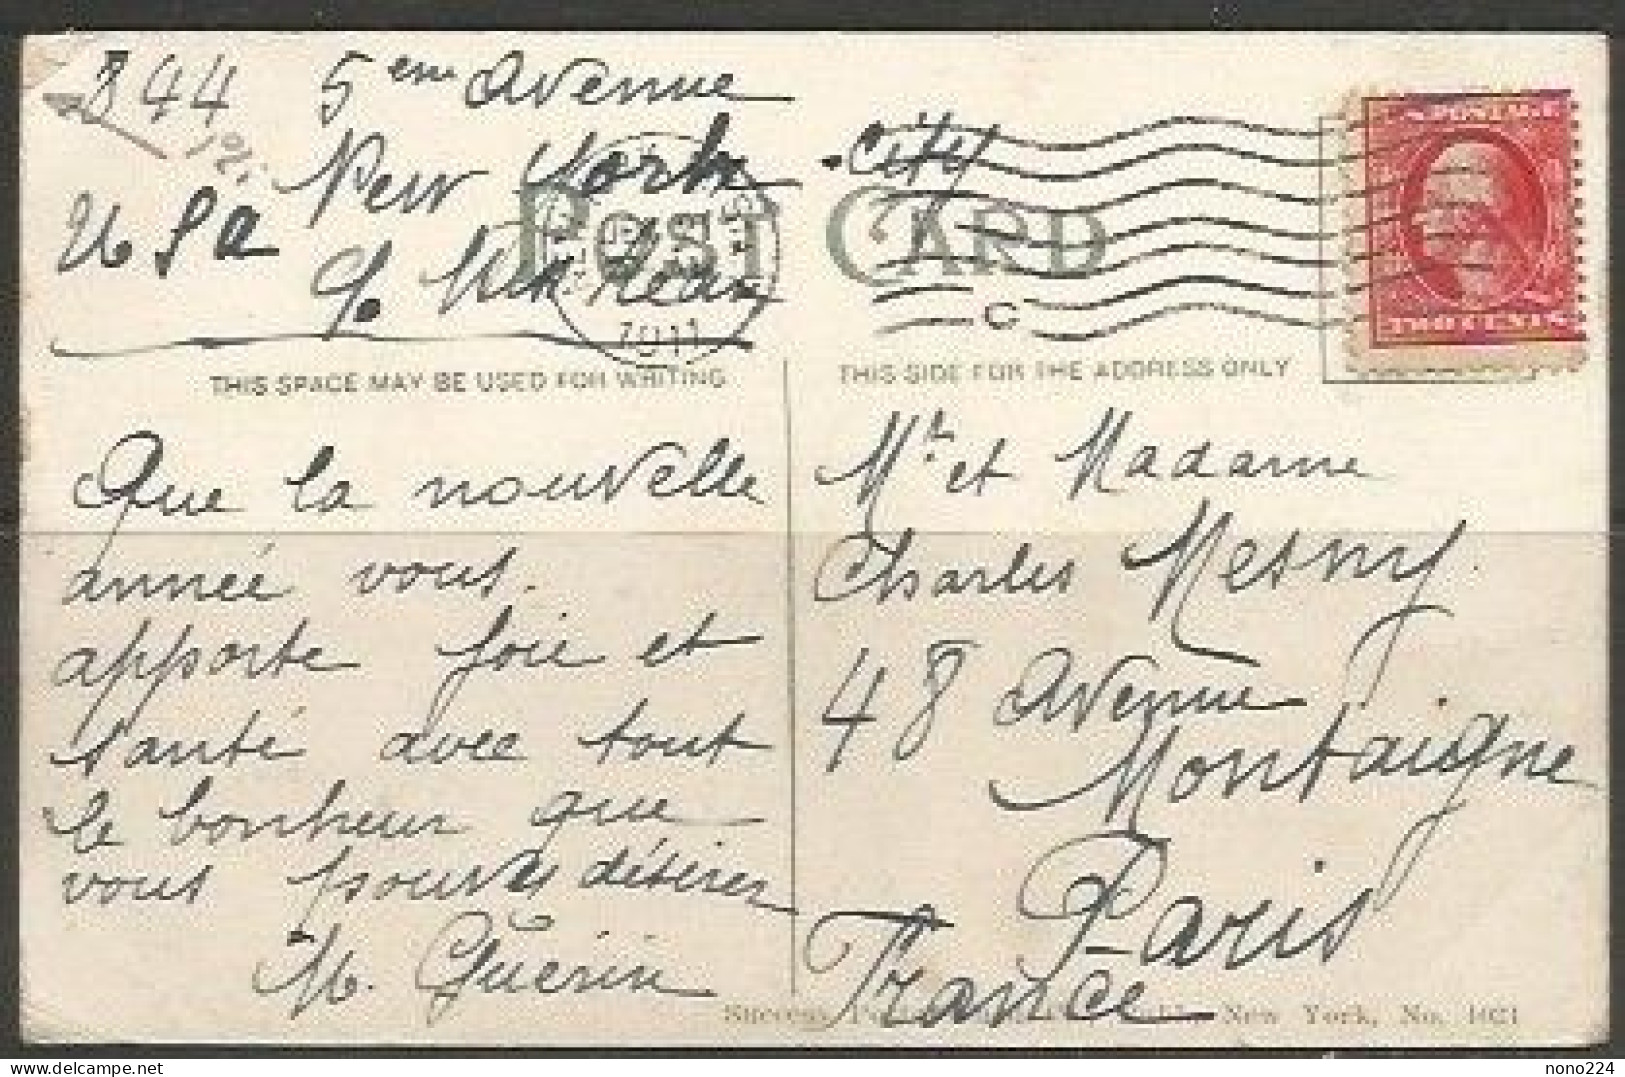 844 5eme Avenue
New York . City
U S a
c/o
POST CARD
1911
C
POSTAGE
TWO CENTS
THIS SPACE MAY BE USED FOR WRITING
THIS SIDE FOR THE ADDRESS ONLY
Que la nouvelle
année vous
apporte joie et
santé avec tout
le bonheur que
vous pouvez désirer
M. Guerin
Mr et Madame
Charles Mesny.
48 Avenue
Montaigne
Paris
France
Success New York, No. 1021
nono224